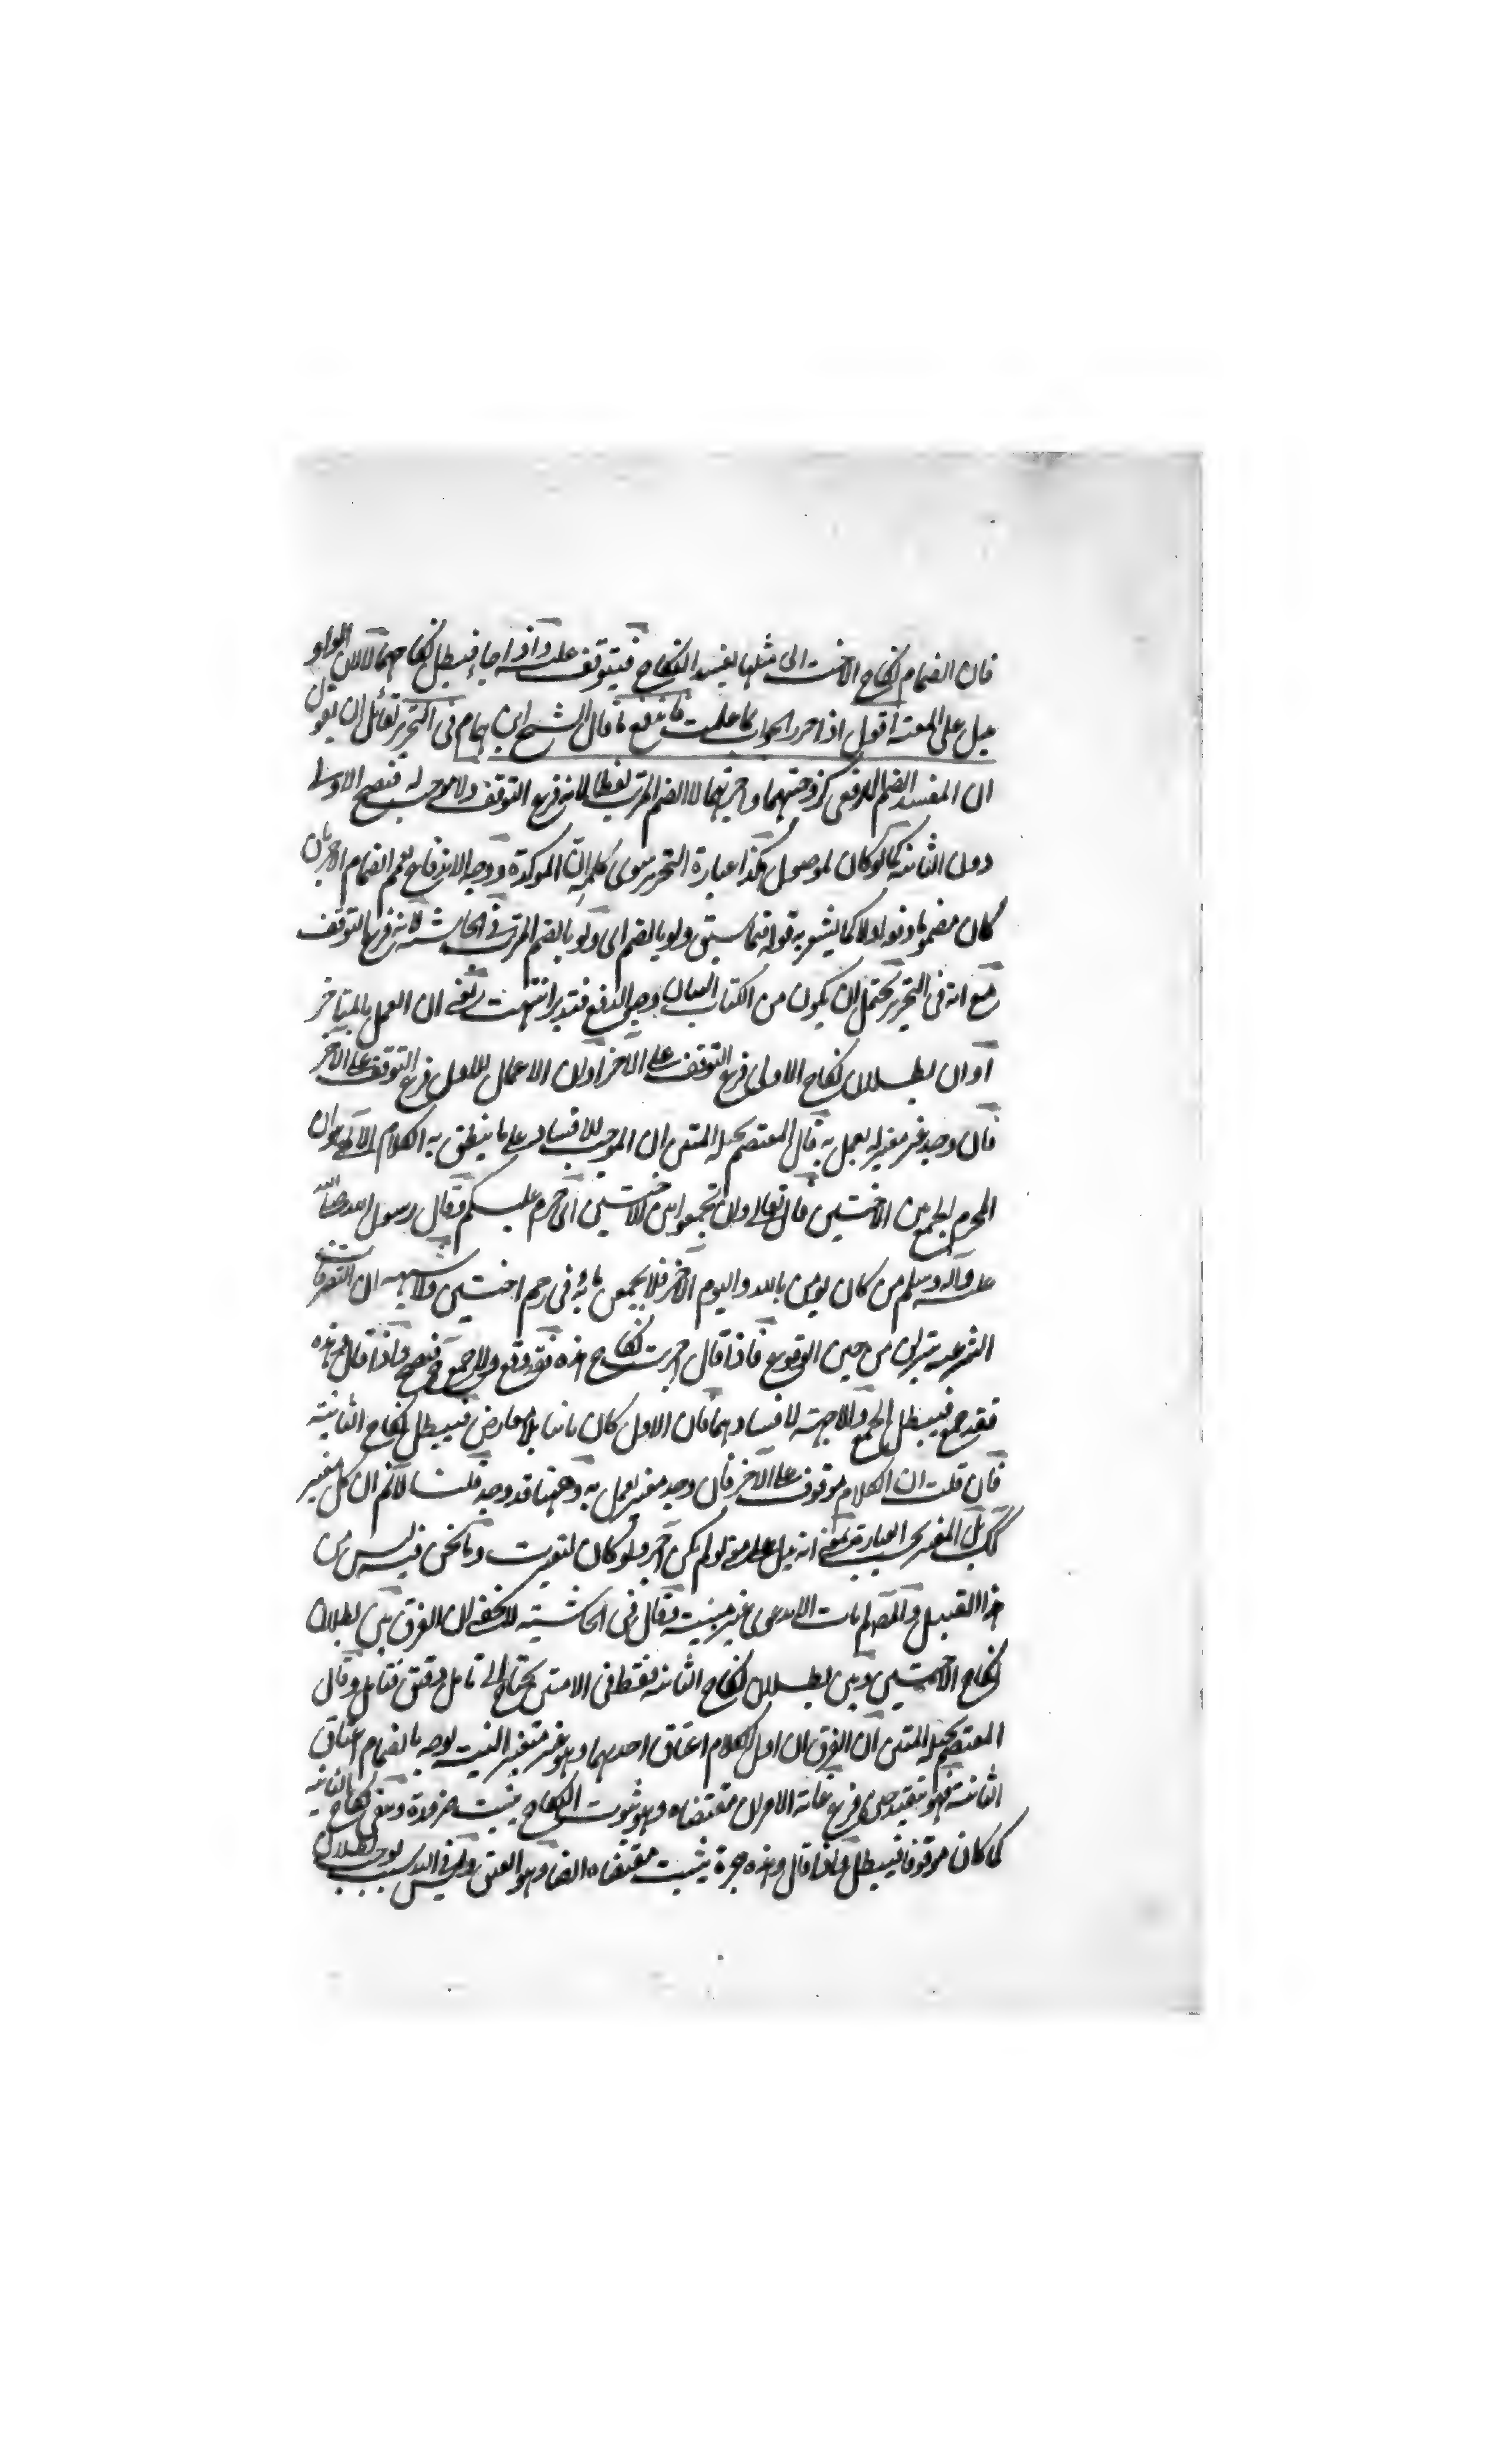 فان انضمام نكاح الاخت الى مثلها يفسد النكاح فيتوقف عليه واذا جاء فيبطل نكاحهما لا لان الواو
يدل على المعية اقول اذا حرر الجواب كما علمت فاندفع ما قال الشيخ ابن همام فى التحرير لقائل ان يقول
ان المفسد الضم الدفعى كزوجتهما واجزتهما لا الضم المرتب لفظا لانه فرع التوقف ولا موجب له فتصح الاولى
دون الثانية كما لو كان بموصول هكذا عبارة التحرير سوى كلمة ان الموكدة ووجه الاندفاع تعمم انضمام الاخر بان
كان مضموما دفعة اولا كما يشعر به قوله فيما سبق ولو بالضم اى ولو بالضم المرتب فى الحاشية لانه فرع التوقف
مع انه فى التحرير يحتمل ان يكون من الكتاب لبيان وجه الدفع فتدبر انتهت يعنى ان العمل بالمتاخر
او ان بطلان نكاح الاولى فرع التوقف على الاخر او ان الاعمال للاول فرع التوقف على الاخر
فان وجد غير مغير له يعمل به قال المعتصم بحبله المتين ان الموجب للافساد على ما ينطق به الكلام الالهى هو ان
المحرم الجمع بين الاختين قال تعالى وان تجمعوا بين الاختين اى حرم عليكم وقال رسول الله صلى الله
عليه وآله وسلم من كان يومن بالله واليوم الآخر فلا يجمعن ماءه فى رحم اختين ولا شبهة ان التصرفات
الشرعية من حين الوقوع فاذا قال اجزت نكاح هذه فقد وقع ولا جمع فيصح واذا قال وهذه
فقد جمع فيبطل الجمع ولا جهة لافسادهما فان الاول كان ثابتا بلا معارض فيبطل نكاح الثانية
فان قلت ان الكلام موقوف على الآخر فان وجد مغير يعمل به وههنا قد وجد قلنا لا نم ان كل مغير
كك بل المغير بحسب العبارة يعنى انه يدل على معنى لو لم يكن آخر ولو كان لتغيرت وما نحن فيه ليس من
هذا القبيل والمصلم يات الا بدعوى غير مبينة وقال فى الحاشية لا يخفى ان الفرق بين بطلان
نكاح الاختين وبين بطلان نكاح الثانية فقط فى الامتين يحتاج الى تامل دقيق فتامل وقال
المعتصم بحبله المتين ان الفرق ان اول الكلام اعتاق احدهما وهو غير متغير البتة بوجه بانضمام اعتاق
الثانية فهو مقيد فرع غاية الامر ان مقتضاه وهو ثبوت النكاح يثبت ضرورة وبقى نكاح الثانية
كما كان موقوفا فيبطل واذا قال وهذه حرة يثبت مقتضاه ايضا وهو العتق وليس فى اليد سبب يوجب بطلان